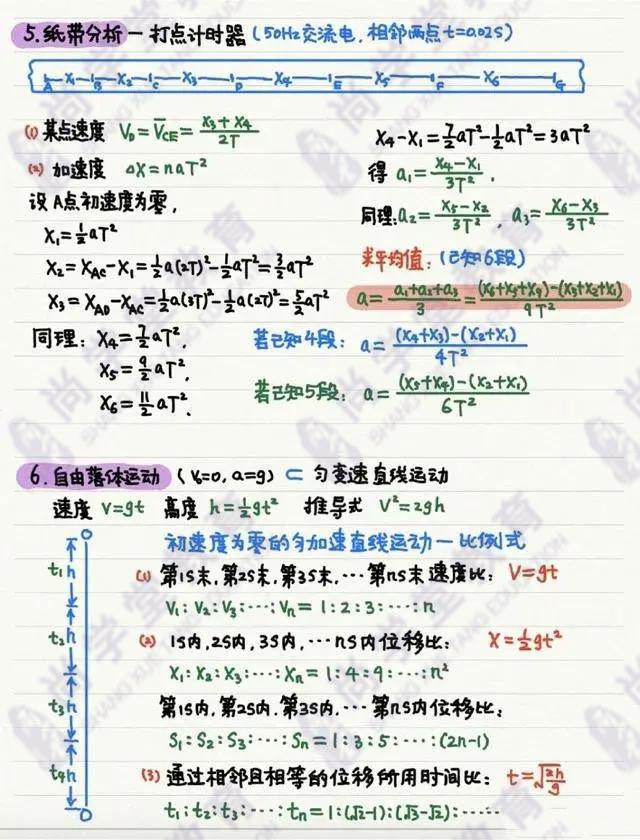 5.纸带分析—打点计时器(50Hz交流电,相邻两点t=0.02S)
A X₁ B X₂ C X₃ D X₄ E X₅ F X₆ G
(1) 某点速度 V_D=V̅_CE=(X₃+X₄)/2T
(2) 加速度 ΔX=naT²
设A点初速度为零,
X₁=½aT²
X₂=X_AC-X₁=½a(2T)²-½aT²=3/2aT²
X₃=X_AD-X_AC=½a(3T)²-½a(2T)²=5/2aT²
同理:X₄=7/2aT²,
X₅=9/2aT²,
X₆=11/2aT².
X₄-X₁=7/2aT²-½aT²=3aT²
得 a₁=(X₄-X₁)/3T²,
同理:a₂=(X₅-X₂)/3T², a₃=(X₆-X₃)/3T²
求平均值:(已知6段)
a=(a₁+a₂+a₃)/3=((X₆+X₅+X₄)-(X₃+X₂+X₁))/9T²
若已知4段: a=((X₄+X₃)-(X₂+X₁))/4T²
若已知5段: a=((X₅+X₄)-(X₂+X₁))/6T²
6.自由落体运动 (V₀=0,a=g) ⊂ 匀变速直线运动
速度 V=gt 高度 h=½gt² 推导式 V²=2gh
初速度为零的匀加速直线运动—比例式
t₁ h
t₂ h
t₃ h
t₄ h
(1) 第1S末,第2S末,第3S末,…第nS末速度比: V=gt
V₁:V₂:V₃:…:Vₙ=1:2:3:…:n
(2) 1S内,2S内,3S内,…nS内位移比: X=½gt²
X₁:X₂:X₃:…:Xₙ=1:4:9:…:n²
第1S内,第2S内.第3S内,…第nS内位移比:
S₁:S₂:S₃:…:Sₙ=1:3:5:…:(2n-1)
(3) 通过相邻且相等的位移所用时间比: t=√(2h/g)
t₁:t₂:t₃:…:tₙ=1:(√2-1):(√3-√2):……
尚学堂教育
SHANG XUE TANG EDUCATION